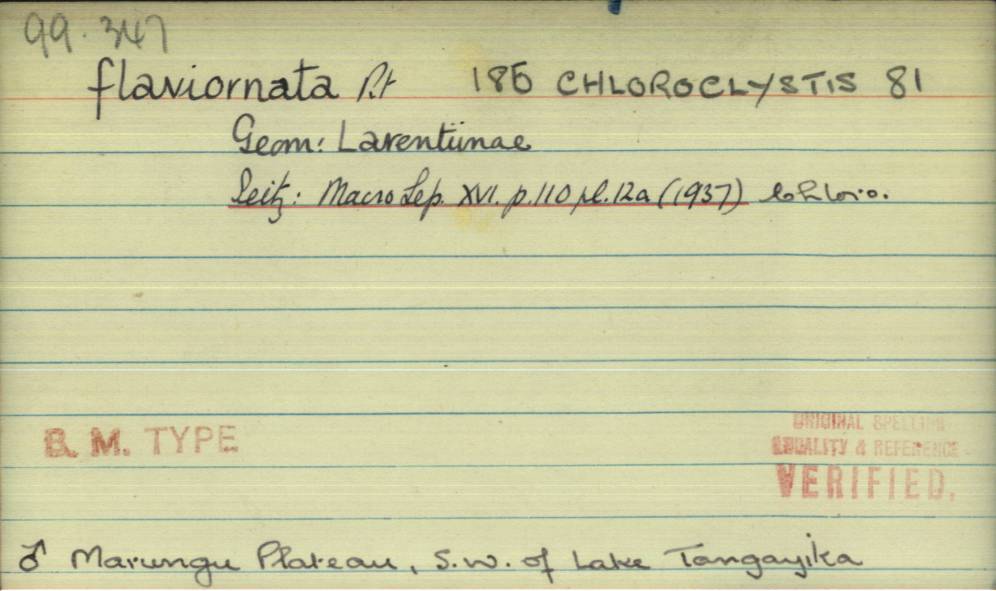 99.347
flaviornata Prt 185 CHLOROCLYSTIS 81
Geom: Larentiinae
Seitz: Macro Lep. XVI. p.110 pl.12a (1937) Chloro.
B. M. TYPE
ORIGINAL SPELLING
LOCALITY & REFERENCE
VERIFIED.
♂ Marungu Plateau, S.W. of Lake Tangayika